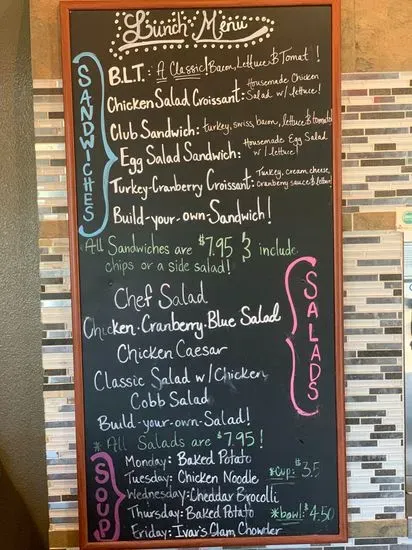 Lunch Menu
SANDWICHES
B.L.T.: A Classic! Bacon, Lettuce & Tomat!
Chicken Salad Croissant: Housemade Chicken
Salad w/ lettuce!
Club Sandwich: turkey, swiss, bacon, lettuce & tomato!
Egg Salad Sandwich: Housemade Egg Salad
w/ lettuce!
Turkey-Cranberry Croissant: Turkey, cream cheese,
cranberry sauce & lettuce!
Build-your-own-Sandwich!
All Sandwiches are $7.95 & include
chips or a side salad!
SALADS
Chef Salad
Chicken-Cranberry-Blue Salad
Chicken Caesar
Classic Salad w/ Chicken
Cobb Salad
Build-your-own-Salad!
* All Salads are $7.95!
SOUP
Monday: Baked Potato
Tuesday: Chicken Noodle
Wednesday: Cheddar Brocolli
Thursday: Baked Potato
Friday: Ivar's Clam Chowder
*Cup: $3.5
*bowl: $4.50